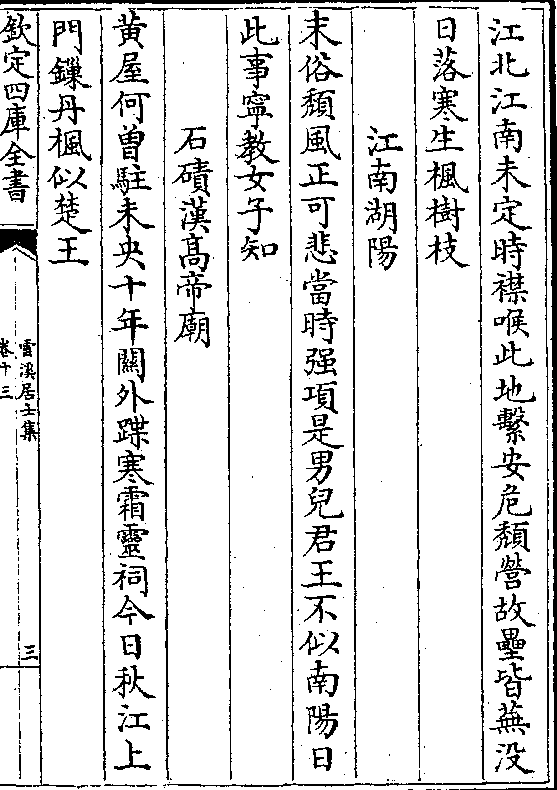 江北江南未定時襟喉此地繫安危頹營故壘皆蕪没
日落寒生楓樹枝
江南湖陽
末俗頹風正可悲當時强項是男兒君王不似南陽日
此事寧教女子知
石磧漢高帝廟
黄屋何曽駐未央十年關外蹀寒霜靈祠今日秋江上
門鏁丹楓似楚王
欽定四庫全書
雲溪居士集
卷十三
三